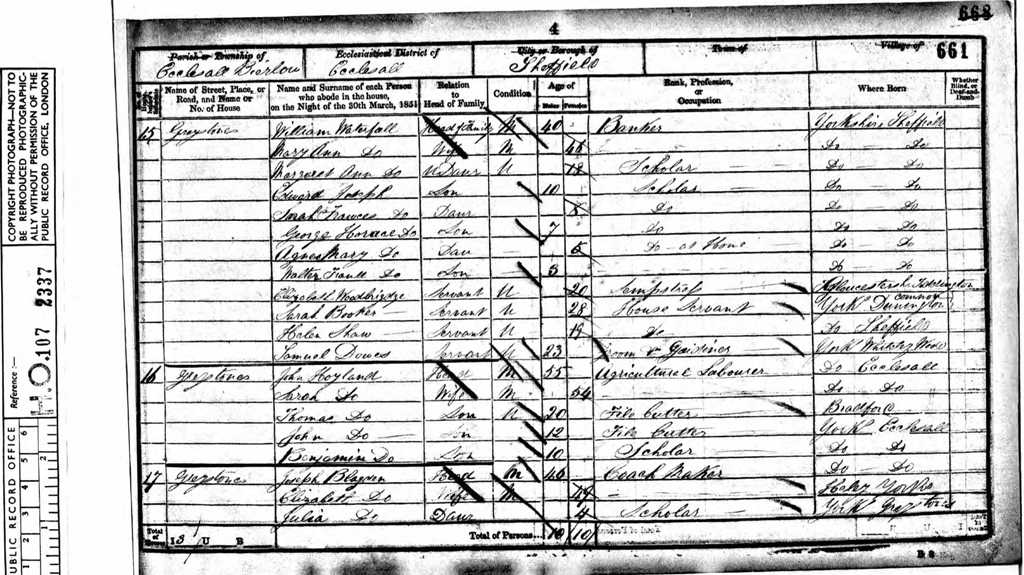 4
668
661
Parish or Township of Ecclesall Bierlow
Ecclesiastical District of Ecclesall
City or Borough of Sheffield
Town of
Village of
Name of Street, Place, or Road, and Name or No. of House
Name and Surname of each Person who abode in the house, on the Night of the 30th March, 1851
Relation to Head of Family
Condition
Age of
Males
Females
Rank, Profession, or Occupation
Where Born
Whether Blind, or Deaf-and-Dumb
15 Greystones William Waterfall Head of Family M 40 Banker Yorkshire Sheffield
Mary Ann Do Wife M Do Do
Margaret Ann Do Daur U Scholar Do Do
Edward Joseph Son 10 Scholar Do Do
Sarah Frances Do Daur 8 Do Do Do
George Horace Do Son 7 Do Do Do
Agnes Mary Do Daur 5 Do at Home Do Do
Walter Do Son 3 Do Do
Elizabeth Woodbridge Servant U 20
Sarah Booker Servant U 28 House Servant York
Helen Shaw Servant U 19 Do Do Sheffield
Samuel Servant U 23 Groom & Gardiner York
16 Greystones John Hoyland Head M 55 Agricultural Labourer Do Ecclesall
Sarah Do Wife M 54 Do Do
Thomas Do Son U 20 File Cutter Bradford
John Do Son 12 File Cutter York Ecclesall
Benjamin Do Son 10 Scholar Do Do
17 Greystones Joseph Blagden Head M 46 Coach Maker Do Do
Elizabeth Do Wife M
Julia Do Daur 4 Scholar York Greystones
Total of Houses 13 U B
Total of Persons 10 10
B 2
COPYRIGHT PHOTOGRAPH—NOT TO
BE REPRODUCED PHOTOGRAPHIC-
ALLY WITHOUT PERMISSION OF THE
PUBLIC RECORD OFFICE, LONDON
Reference :—
H.O. 107 2337
PUBLIC RECORD OFFICE
1 2 3 4 5 6
1 2